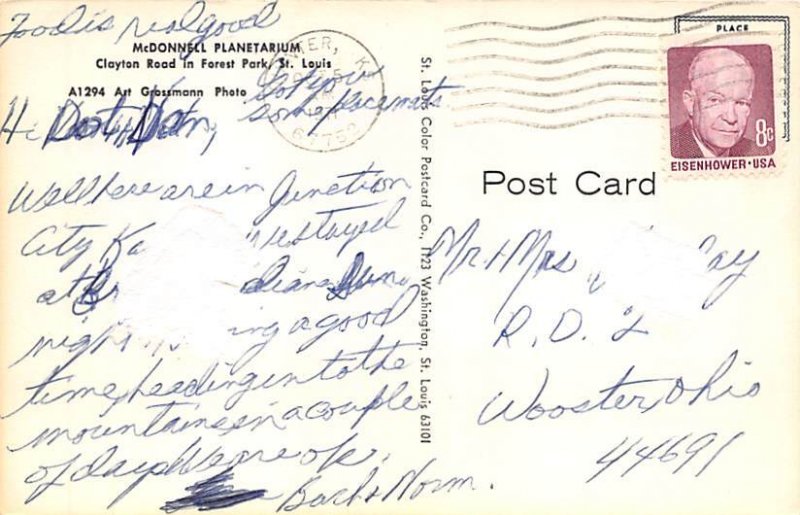 Food is real good
McDONNELL PLANETARIUM
Clayton Road in Forest Park, St. Louis
A1294 Art Grossmann Photo
Got you
some placemats
Hi Dot,
Well here are in Junction
City Ka We stayed
at
night ing a good
time, heading into the
mountains in a couple
of days We're ok.
Barb & Norm.
St. Louis Color Postcard Co., 1123 Washington, St. Louis 63101
PLACE
8c
EISENHOWER·USA
67752
Post Card
Mr. + Mrs ay
R.D. 2
Wooster, Ohio
44691